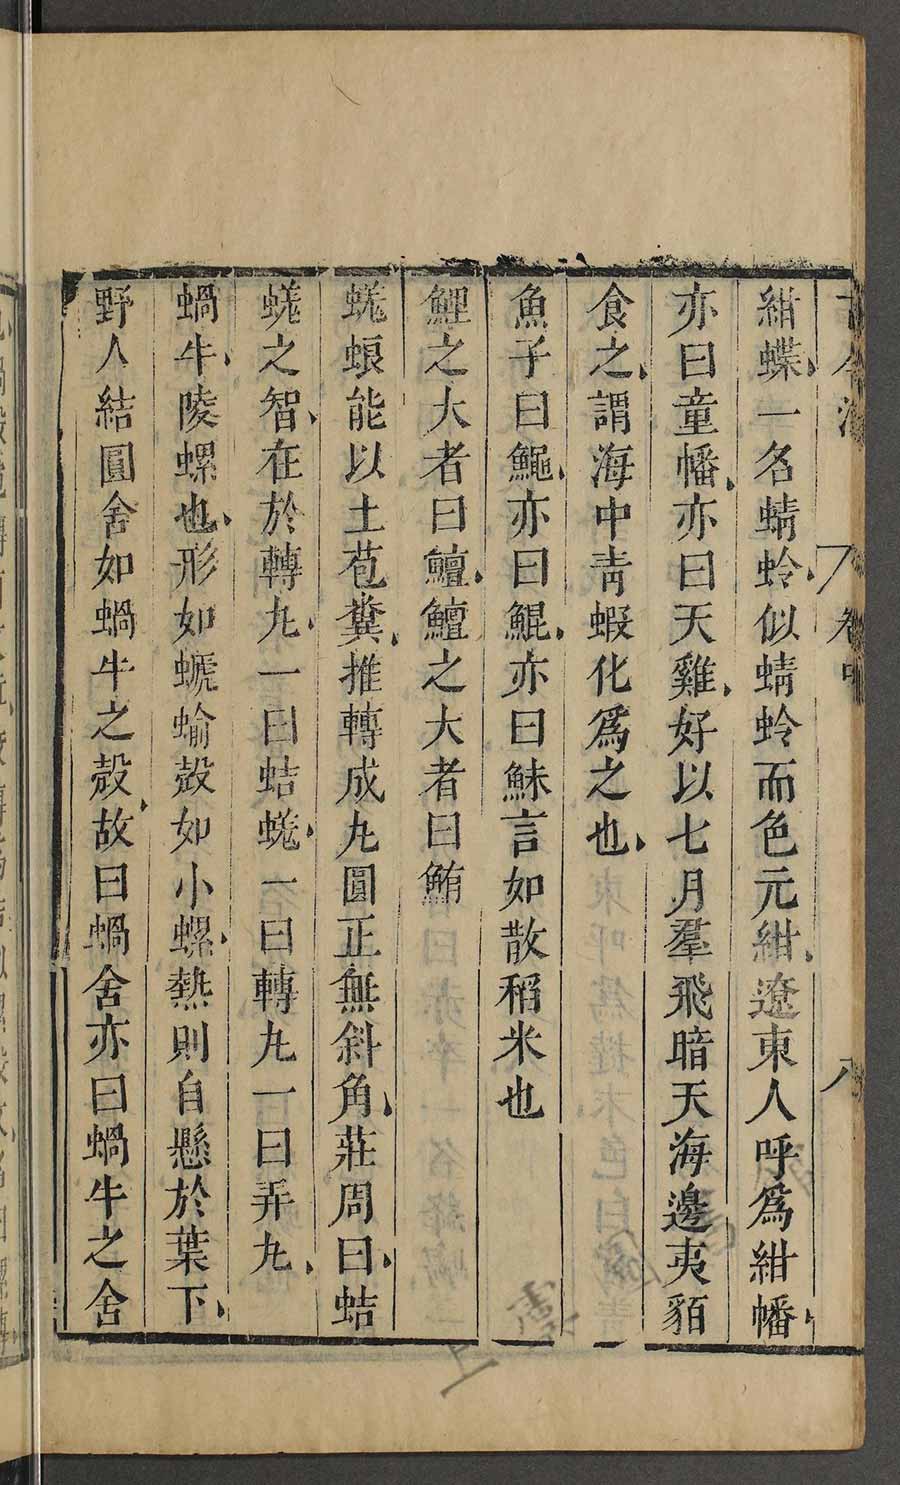 古今注 卷中 八
紺蝶一名蜻蛉似蜻蛉而色元紺遼東人呼爲紺幡
亦曰童幡亦曰天雞好以七月羣飛暗天海邊夷貊
食之謂海中靑蝦化爲之也
魚子曰鱦亦曰鯤亦曰䱅言如散稻米也
鯉之大者曰鱣鱣之大者曰鮪
蜣蜋能以土苞糞推轉成丸圓正無斜角莊周曰蛣
蜣之智在於轉丸一曰蛣蜣一曰轉丸一曰弄丸
蝸牛陵螺也形如螔蝓殼如小螺熱則自懸於葉下
野人結圓舍如蝸牛之殼故曰蝸舍亦曰蝸牛之舍